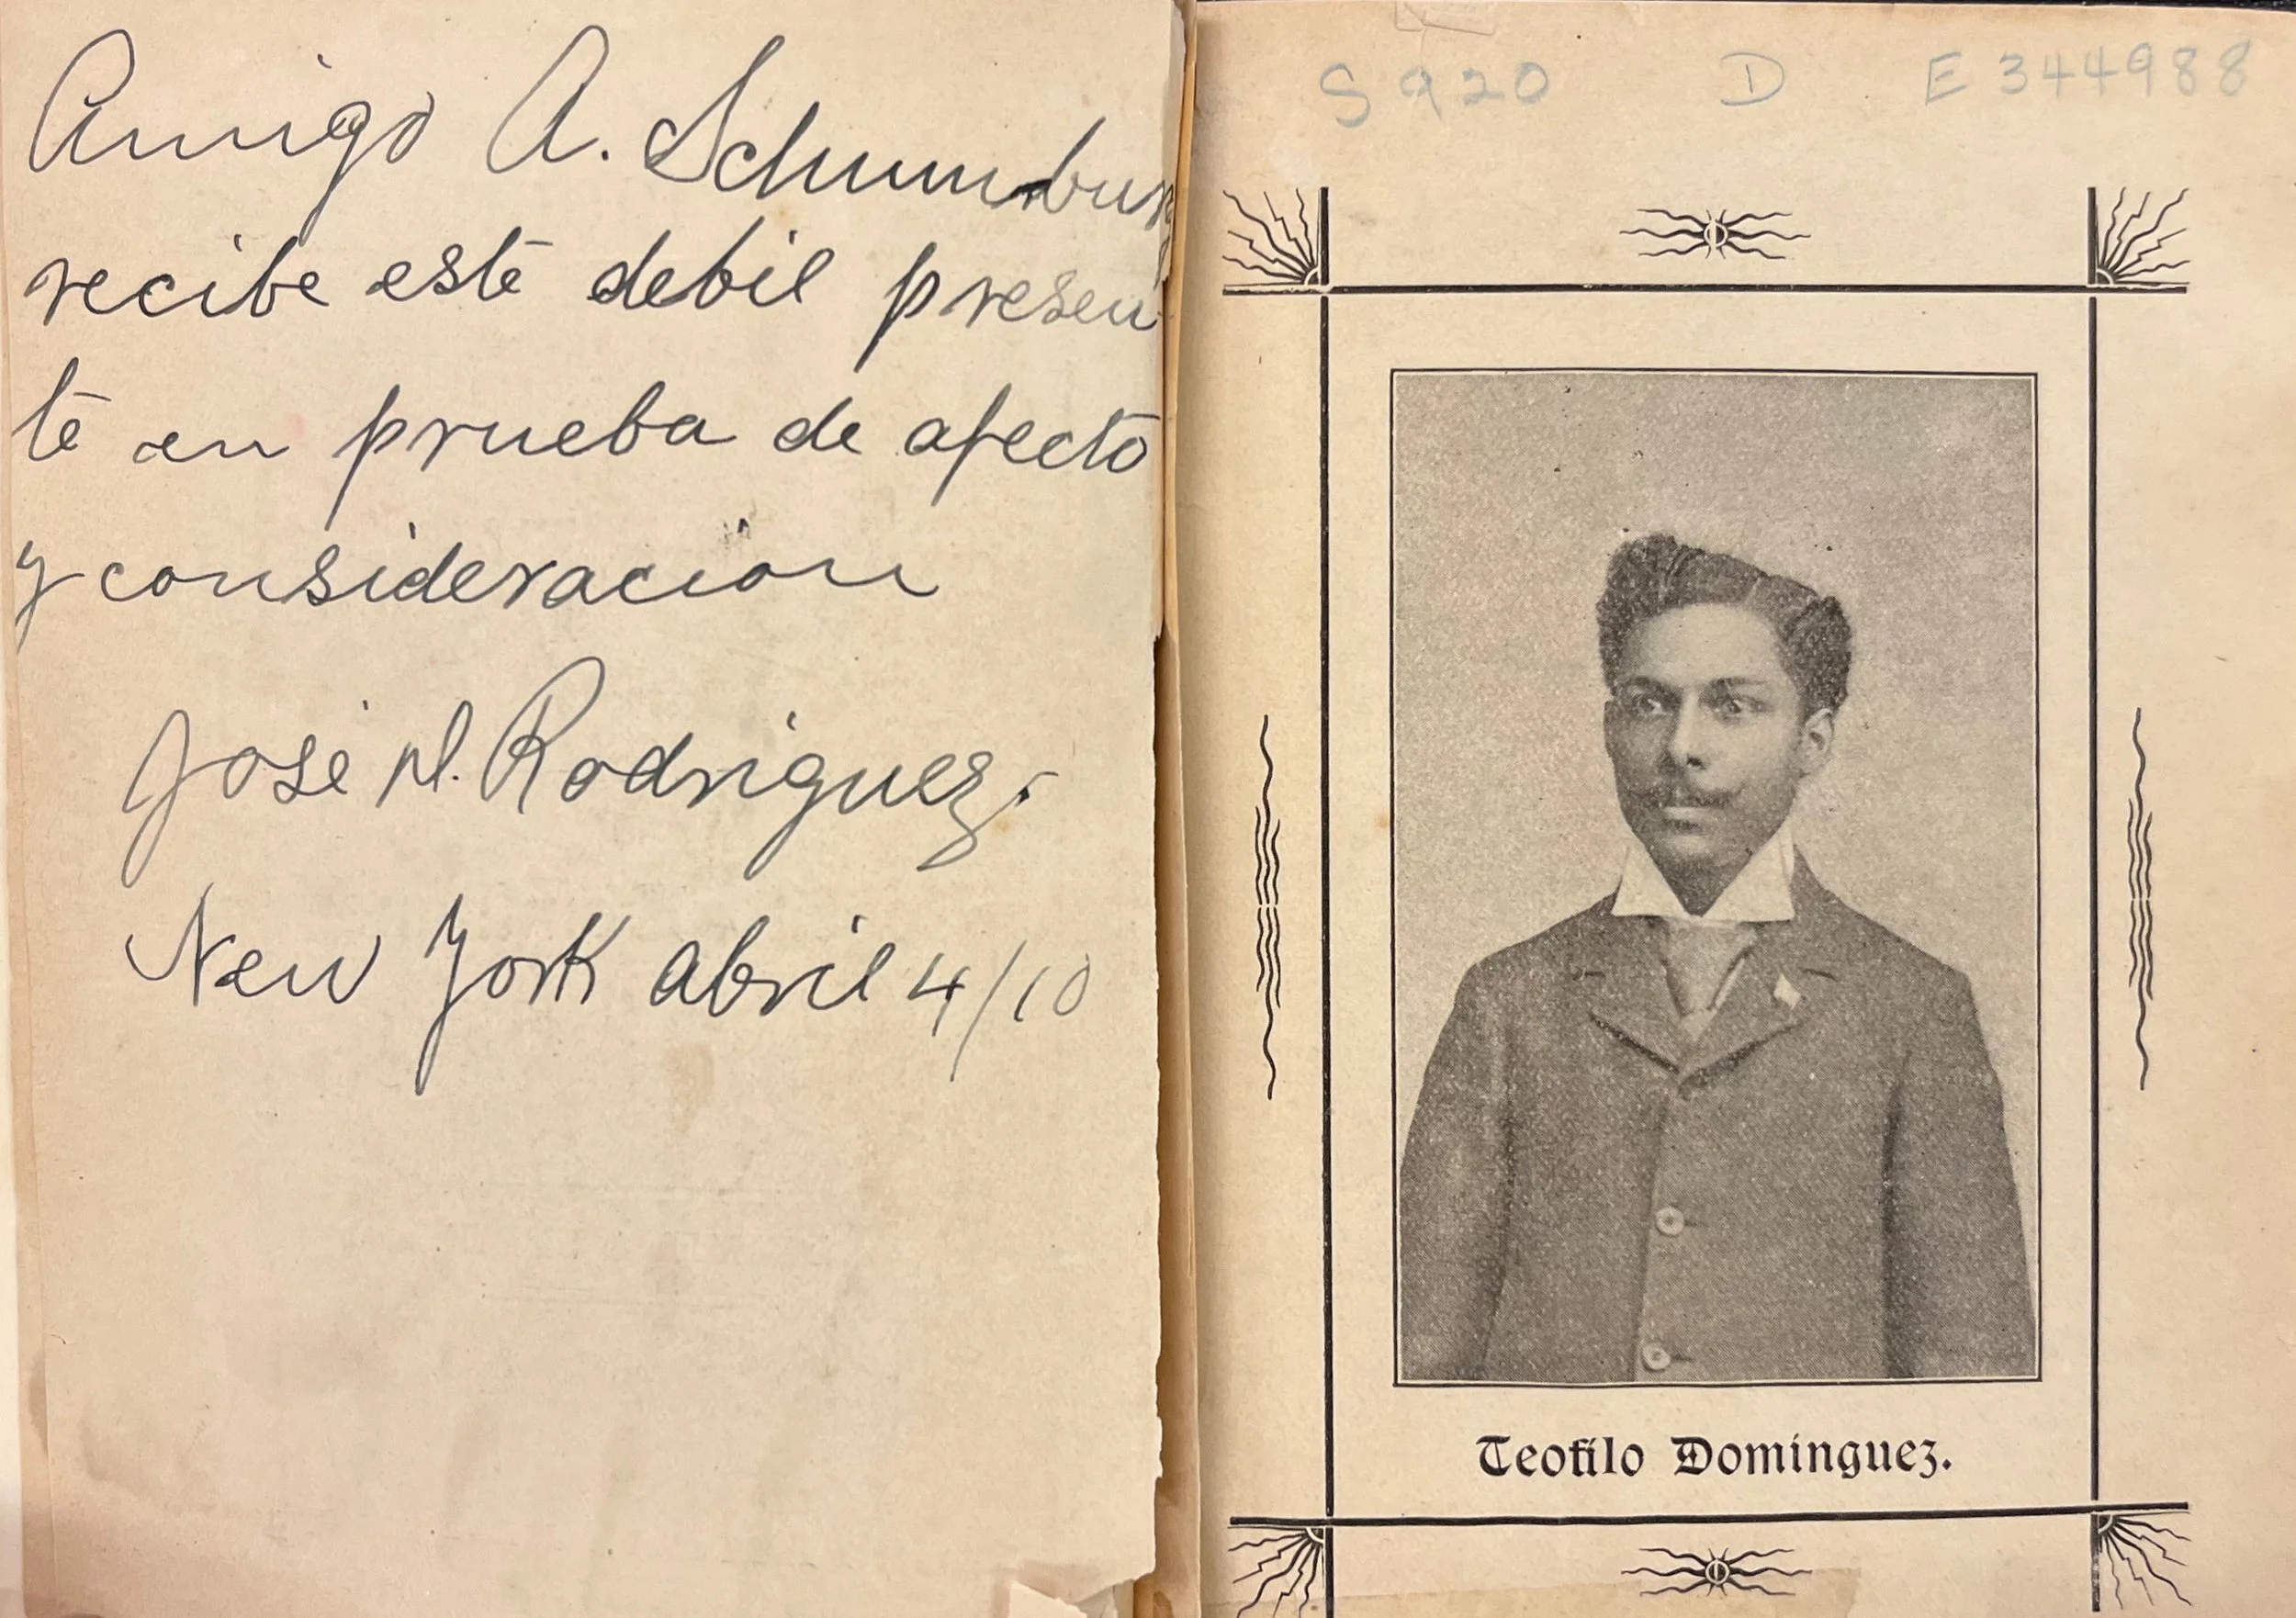 Amigo A. Schumburg
recibe este debil presen
te en prueba de afecto
y consideracion
José N. Rodriguez.
New York abril 4/10
S 920 D E344988
Teofilo Dominguez.